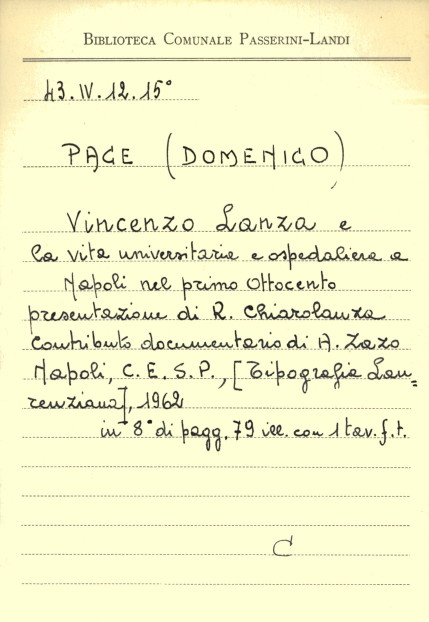 BIBLIOTECA COMUNALE PASSERINI-LANDI
43.IV.12.15°
PACE (DOMENICO)
Vincenzo Lanza e
la vita universitaria e ospedaliera a
Napoli nel primo Ottocento
presentazione di R. Chiarolanza
Contributo documentario di A. Zazo
Napoli, C.E.S.P., [Tipografia Lau=
renziana], 1962
in 8° di pagg. 79 ill. con 1 tav. f.t.
C